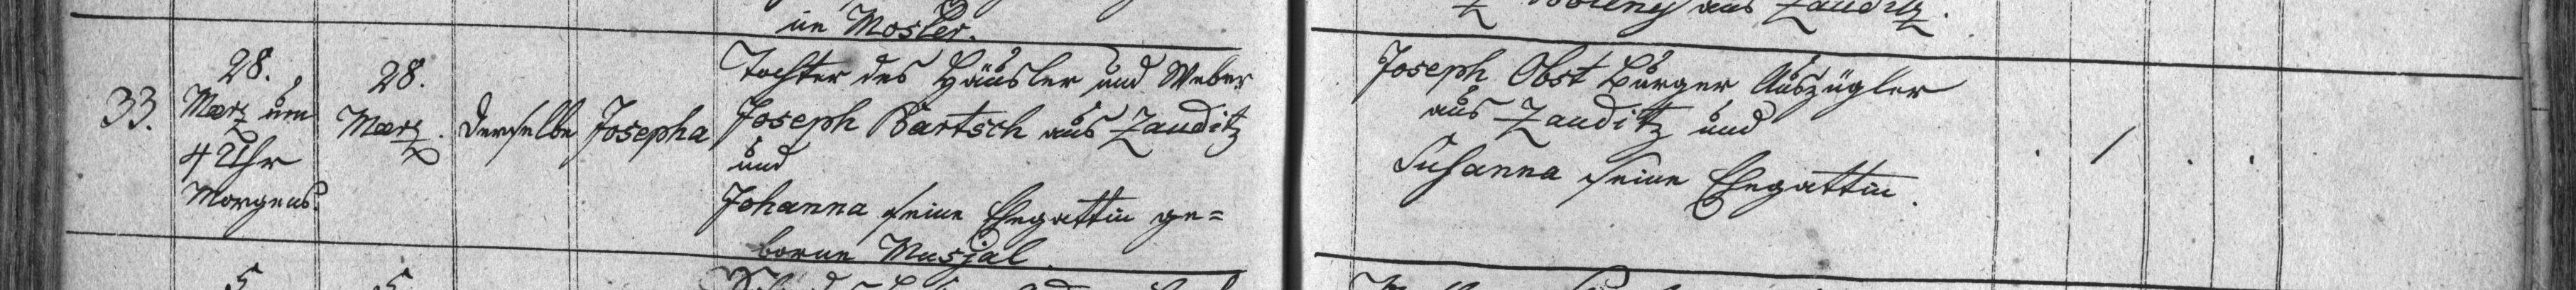 ne Mosler.
aus Zauditz.
33.
28.
Maerz um
4 Uhr
Morgens.
28.
Maerz.
derselbe
Josepha
Tochter des Häusler und Weber
Joseph Bartsch aus Zauditz
und
Johanna seine Ehegattin ge=
borne Musjal.
Joseph Obst Bürger Auszügler
aus Zauditz und
Susanna seine Ehegattin.
/
5
5